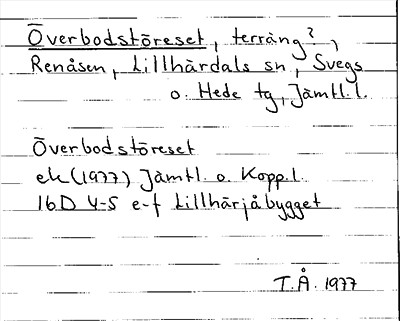 Överbodstöreset, terräng?,
Renåsen, Lillhärdals sn, Svegs
o. Hede tg, Jämtl.l.
Överbodstöreset
ek (1977) Jämtl. o. Kopp.l.
16D 4-5 e-f Lillhärjåbygget
T.Å. 1977